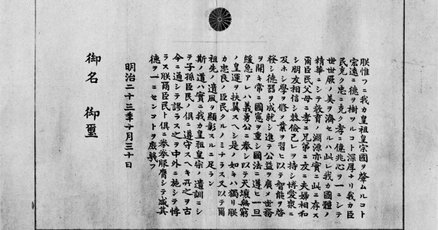 朕惟フニ我カ皇祖皇宗國ヲ肇ムルコト
宏遠ニ德ヲ樹ツルコト深厚ナリ我カ臣
民克ク忠ニ克ク孝ニ億兆心ヲ一ニシテ
世世厥ノ美ヲ濟セルハ此レ我カ國體ノ
精華ニシテ敎育ノ淵源亦實ニ此ニ存ス
爾臣民父母ニ孝ニ兄弟ニ友ニ夫婦相和
シ朋友相信シ恭儉己レヲ持シ博愛衆ニ
及ホシ學ヲ修メ業ヲ習ヒ以テ智能ヲ啓
發シ德器ヲ成就シ進テ公益ヲ廣メ世務
ヲ開キ常ニ國憲ヲ重シ國法ニ遵ヒ一旦
緩急アレハ義勇公ニ奉シ以テ天壤無窮
ノ皇運ヲ扶翼スヘシ是ノ如キハ獨リ朕
カ忠良ノ臣民タルノミナラス又以テ爾
祖先ノ遺風ヲ顯彰スルニ足ラン
斯ノ道ハ實ニ我カ皇祖皇宗ノ遺訓ニシ
テ子孫臣民ノ倶ニ遵守スヘキ所之ヲ古
今ニ通シテ謬ラス之ヲ中外ニ施シテ悖
ラス朕爾臣民ト倶ニ拳々服膺シテ咸其
德ヲ一ニセンコトヲ庶幾フ
明治二十三年十月三十日
御名 御璽